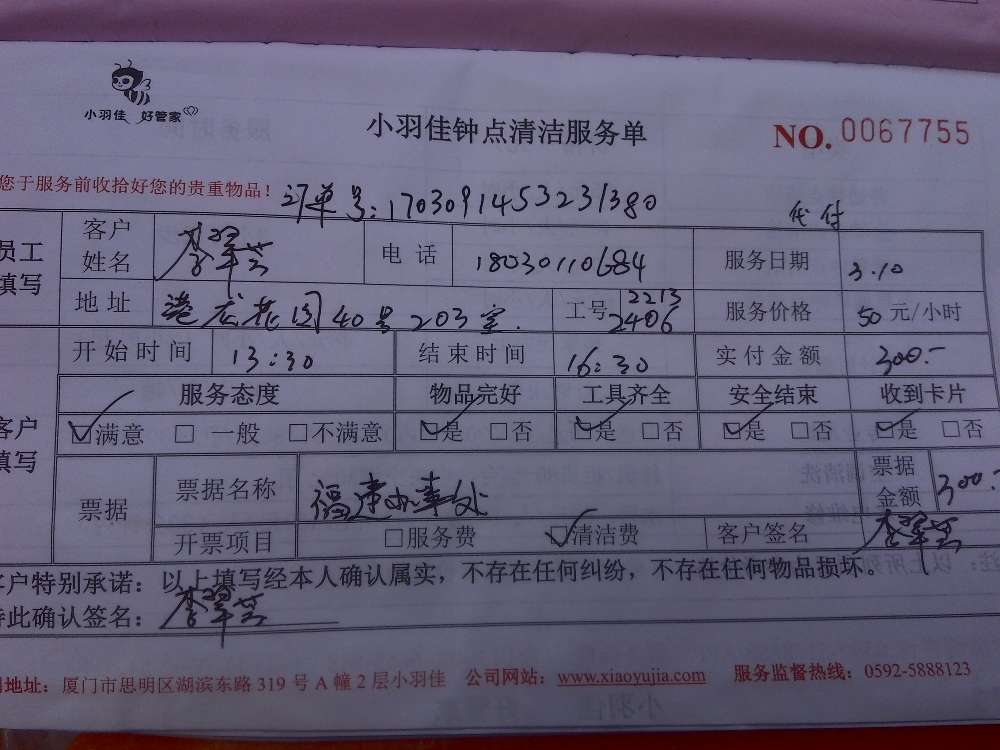 小羽佳 好管家
小羽佳钟点清洁服务单
NO. 0067755
您于服务前收拾好您的贵重物品！
订单号：17030914532231380
代付
员工填写
客户姓名 李翠芸 电话 18030110684 服务日期 3.10
地址 港龙花园40号203室. 工号 2213 2406 服务价格 50元/小时
开始时间 13:30 结束时间 16:30 实付金额 300.-
客户填写
服务态度 物品完好 工具齐全 安全结束 收到卡片
☑满意 □一般 □不满意 ☑是 □否 ☑是 □否 ☑是 □否 ☑是 □否
票据 票据名称 福建办事处 票据金额 300.-
开票项目 □服务费 ☑清洁费 客户签名 李翠芸
客户特别承诺：以上填写经本人确认属实，不存在任何纠纷，不存在任何物品损坏。
特此确认签名：李翠芸
地址：厦门市思明区湖滨东路319号A幢2层小羽佳 公司网站：www.xiaoyujia.com 服务监督热线：0592-5888123